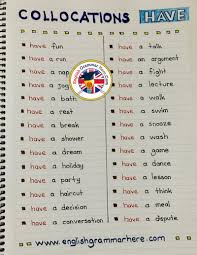 COLLOCATIONS HAVE
have fun
have a run
have a nap
have a jog
have a bath
have a rest
have a break
have a shower
have a dream
have a holiday
have a party
have a haircut
have a decision
have a conversation
have a talk
have an argument
have a fight
have a lecture
have a walk
have a swim
have a snooze
have a wash
have a game
have a dance
have a lesson
have a think
have a meal
have a dispute
www.englishgrammarhere.com